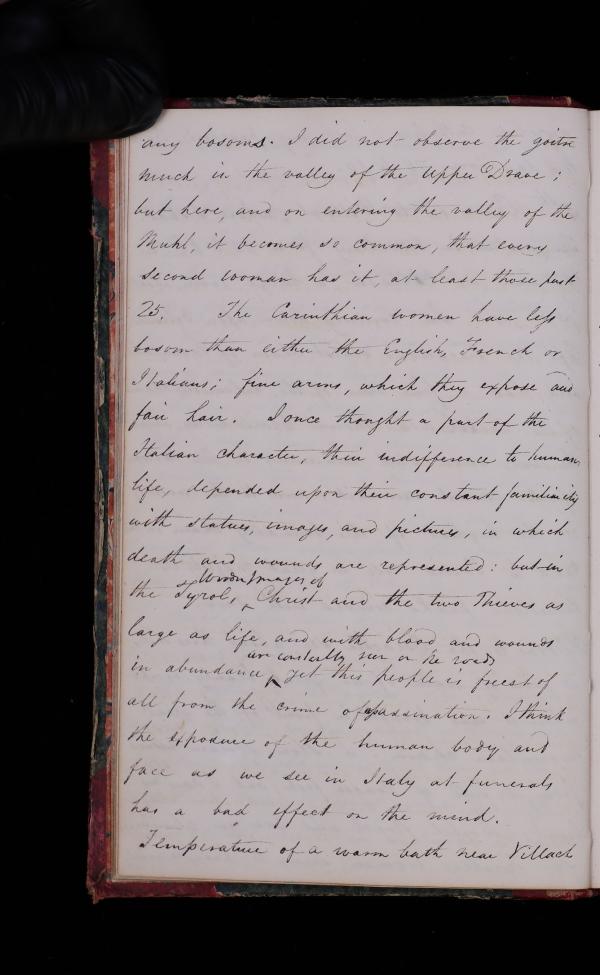 any bosoms. I did not observe the goitre
much in the valley of the Upper Drave;
but here, and on entering the valley of the
Muhl, it becomes so common, that every
second woman has it, at least those past
25. The Carinthian women have less
bosom than either the English, French or
Italians; fine arms, which they expose and
fair hair. I once thought a part of the
Italian character, their indifference to human
life, depended upon their constant familiarity
with statues, images, and pictures, in which
death and wounds are represented: but in
Wooden Images of
the Tyrol, Christ and the two Thieves as
large as life, and with blood and wounds
are constantly seen on the roads
in abundance, yet this people is freest of
all from the crime of assassination. I think
the exposure of the human body and
face as we see in Italy at funerals
has a bad effect on the mind.
Temperature of a warm bath near Villach